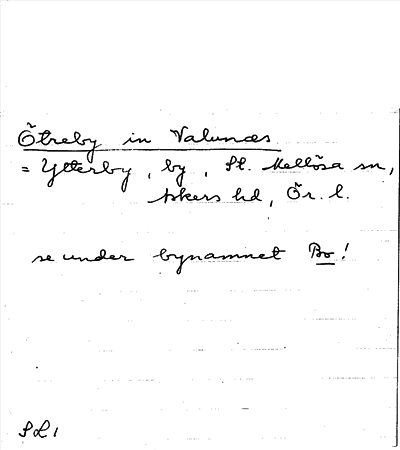 Õtreby in Valunæs
= Ytterby, by, St. Mellösa sn,
Askers hd, Ör. l.
se under bynamnet Bo!
SL 1